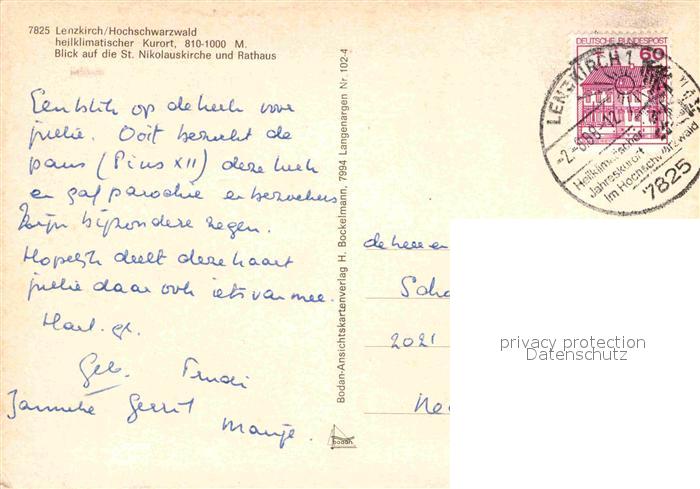 7825 Lenzkirch/Hochschwarzwald
heilklimatischer Kurort, 810-1000 M.
Blick auf die St. Nikolauskirche und Rathaus
DEUTSCHE BUNDESPOST
60
LENZKIRCH 1
Heilklimatischer
Jahreskurort
Im Hochschwarzwald
7825
Een blik op de kerk voor
jullie. Ooit bezocht de
paus (Pius XII) deze kerk
en gaf parochie en bezoekers
Zijn bijzondere zegen.
Hopelijk deelt deze kaart
jullie daar ook iets van mee.
Hart. gr.
Geb. Trudi
Janneke Gerrit
Bodan-Ansichtskartenverlag H. Bockelmann, 7994 Langenargen Nr 102-4
bodan
de heer en
2021
privacy protection
Datenschutz